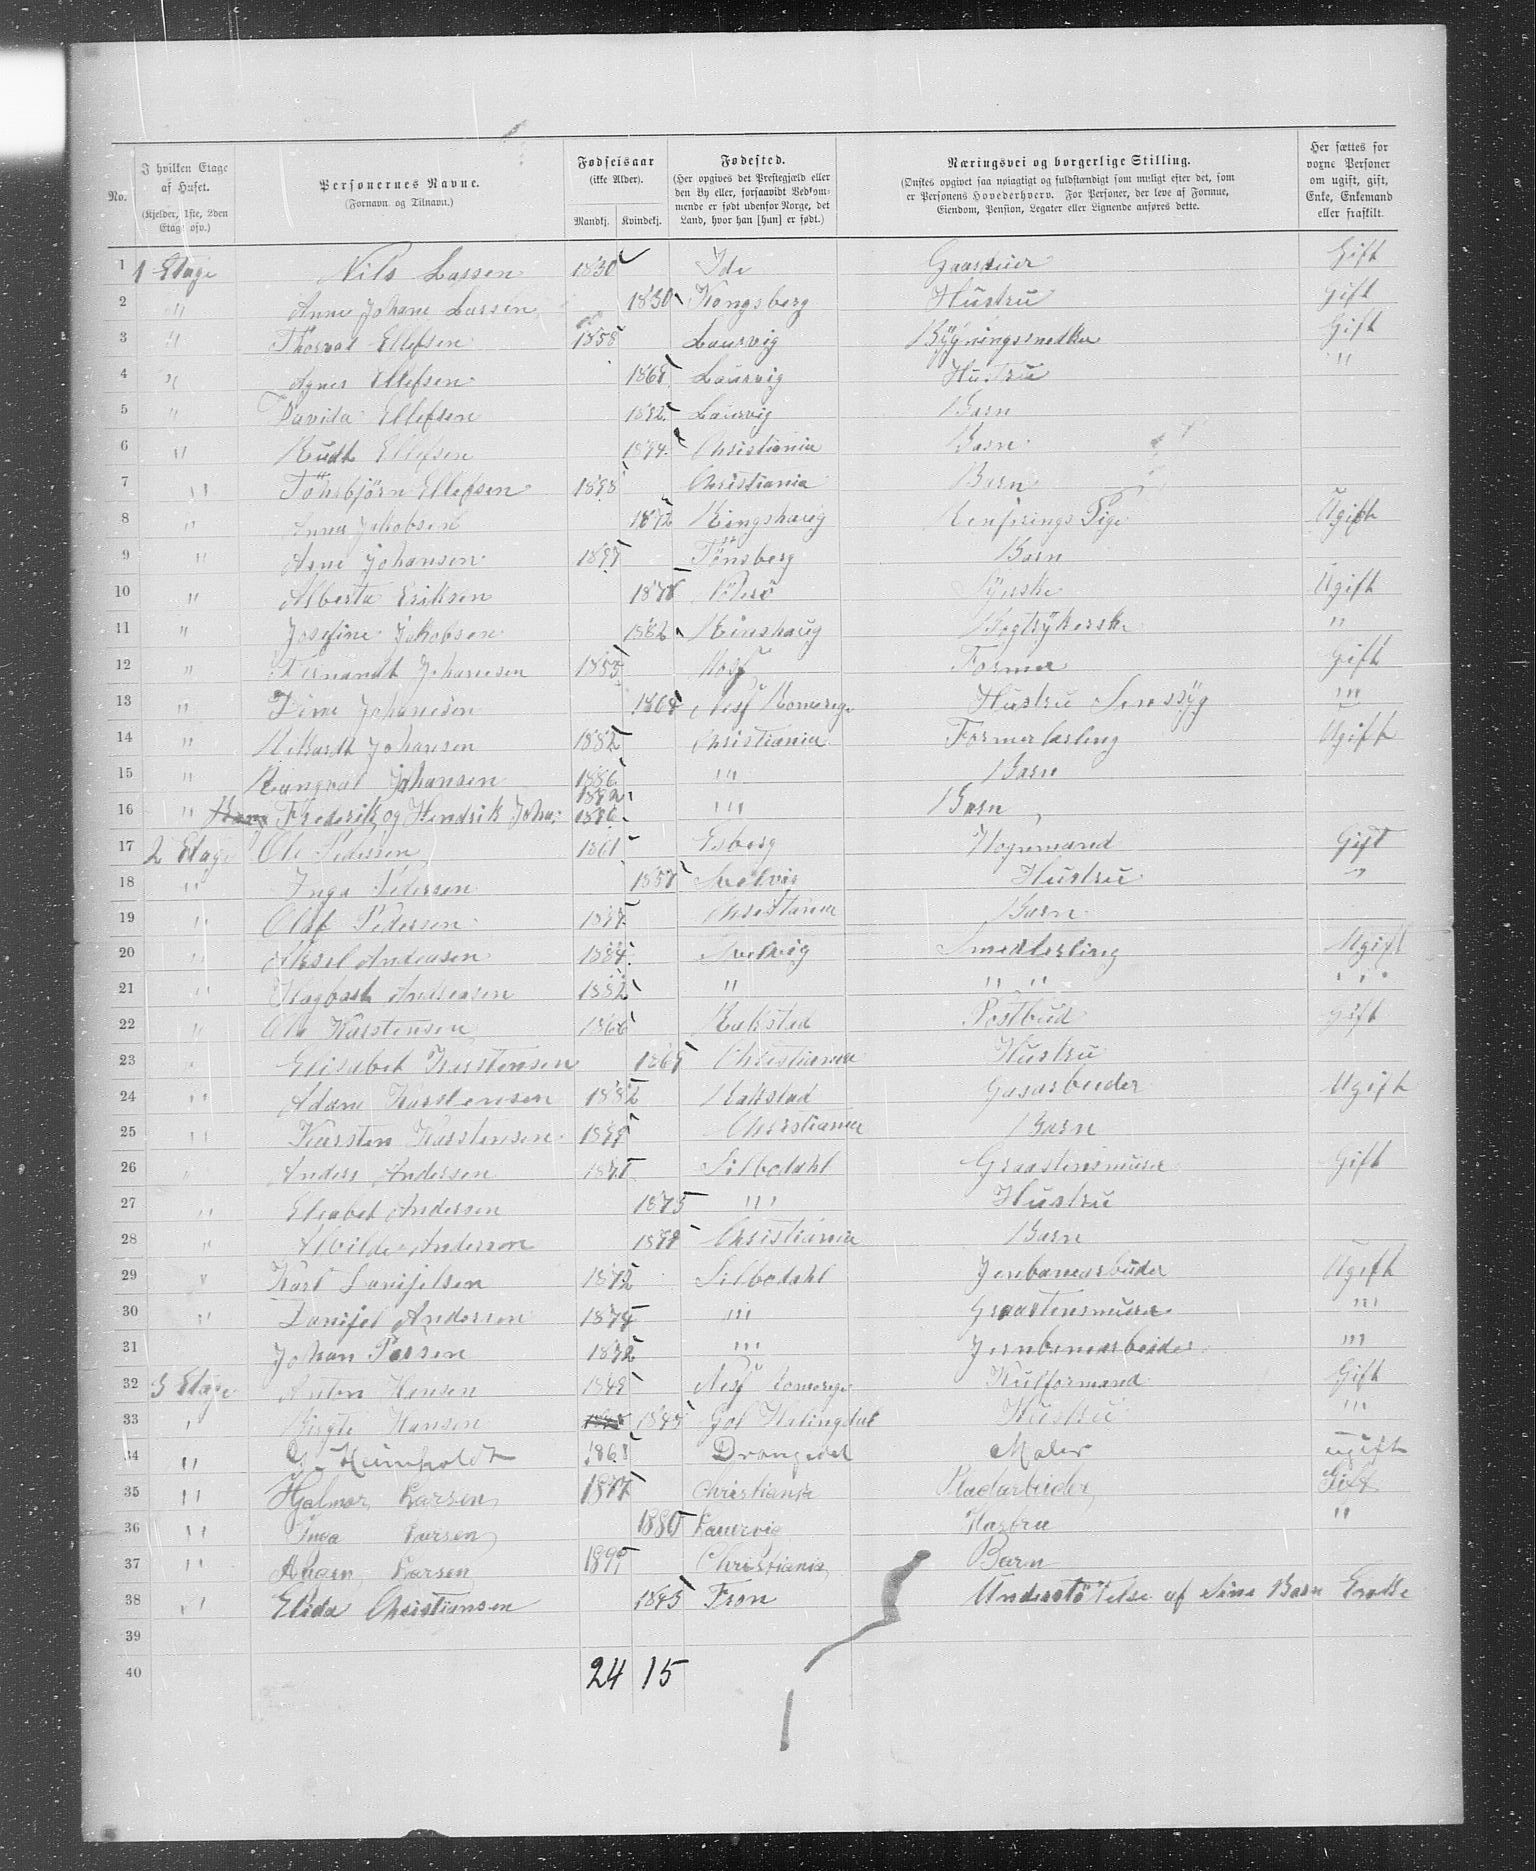 No.
I hvilken Etage af Huset. (Kjelder, 1ste, 2den Etage osv.)
Personernes Navne. (Fornavn og Tilnavn.)
Fødselsaar (ikke Alder). Mandkj. Kvindekj.
Fødested. (Her opgives det Prestegjæld eller den By eller, forsaavidt Vedkommende er født udenfor Norge, det Land, hvor han [hun] er født.)
Næringsvei og borgerlige Stilling. (Ønskes opgivet saa nøiagtigt og fuldstændigt som muligt efter det, som er Personens Hovederhverv. For Personer, der leve af Formue, Eiendom, Pension, Legater eller Lignende anføres dette.
Her sættes for voxne Personer om ugift, gift, Enke, Enkemand eller fraskilt.
1 1 Etage Nils Lassen 1830 Ide Gift
2 " Anne Johane Lassen 1830 Kongsberg Hustru gift
3 " Thorval Ellefsen 1858 Laurvig Bygningssnedker Gift
4 " Agnes Ellefsen 1868 Laurvig Hustru "
5 " Davida Ellefsen 1892 Laurvig Barn
6 " Ruth Ellefsen 1894 Christiania Barn
7 " Thorbjörn Ellefsen 1898 Christiania Barn
8 " Anna Jakobsen 1872 Ringshaug Pige Ugift
9 " Arne Johansen 1897 Tönsberg Barn
10 " Alberta Eriksen 1878 Syerske Ugift
11 " Josefine Jakobsen 1882 Rinshaug Bogtrykerske "
12 " Fernandt Johansen 1855 Former Gift
13 " Johansen 1864 Nes Romerige Hustru Sinssyg "
14 " Rikardt Johansen 1882 Christiania Formerlærling Ugift
15 " Rangval Johansen 1886 " Barn
16 " Frederik og Hendrik Joha: 1892 1896 " Barn
17 2 Etage Ole Pedersen 1861 Esberg Vognmand Gift
18 " Inga Pedersen 1857 Svelvig Hustru "
19 " Olaf Pedersen Christiania Barn
20 " Aksel Andreasen 1884 Svelvig Smedlerling Ugift
21 " Dagbart Andreasen 1882 " " " "
22 " Ole Karstensen 1866 Rakstad Postbud Gift
23 " Elisabet Karstensen Christiania Hustru
24 " Adam Karstensen 1882 Rakstad Gasarbeider Ugift
25 " Karsten Karstensen Christiania Barn
26 " Anders Andersen 1871 Silbodahl Graastensmurer Gift
27 " Elisabet Andersen 1875 " Hustru
28 " Alvilde Anderson 1899 Christiania Barn
29 " Karl Danijelsen 1872 Silbodahl Jernbanearbeider Ugift
30 " Danijel Anderson 1874 " Graastensmurer "
31 Johan Persen 1872 " Jernbanearbeider "
32 3 Etage Anton Hansen 1849 Nes Romerige Kulformand Gift
33 " Birgte Hansen 1845 Gol Halingdal Hustru "
34 " Humholdt 1868 Drangedal Maler ugift
35 " Hjalmar Larsen 1877 Christiania Stadarbeider Gift
36 " Inga Larsen 1880 Laurvig Hustru "
37 " Larsen 1899 Christiania Barn
38 " Elida Christiansen 1845 Fron Understöttelse af sine Barn Enke
39
40 24 15